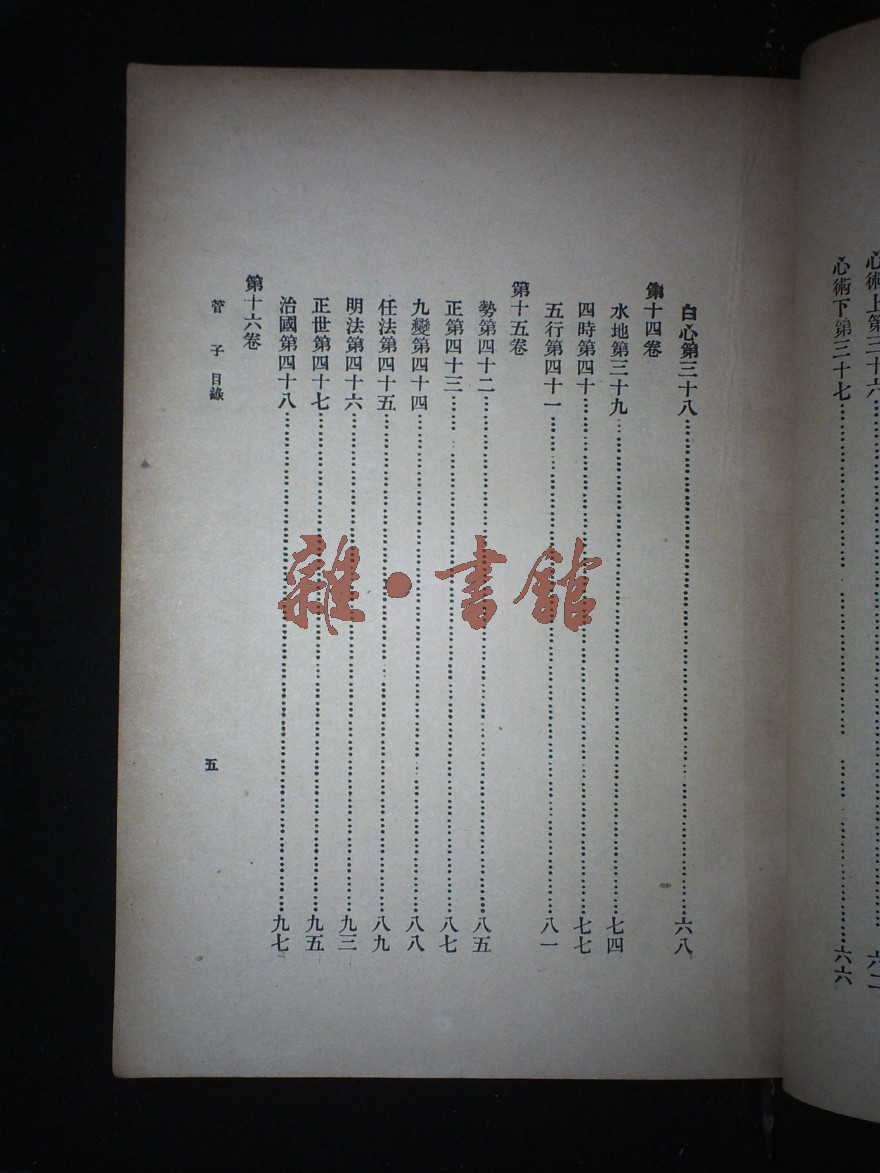 心術上第三十六……六二
心術下第三十七……六六
白心第三十八……六八
第十四卷
水地第三十九……七四
四時第四十……七七
五行第四十一……八一
第十五卷
勢第四十二……八五
正第四十三……八七
九變第四十四……八八
任法第四十五……八九
明法第四十六……九三
正世第四十七……九五
治國第四十八……九七
第十六卷
管子 目錄
五
雜·書館